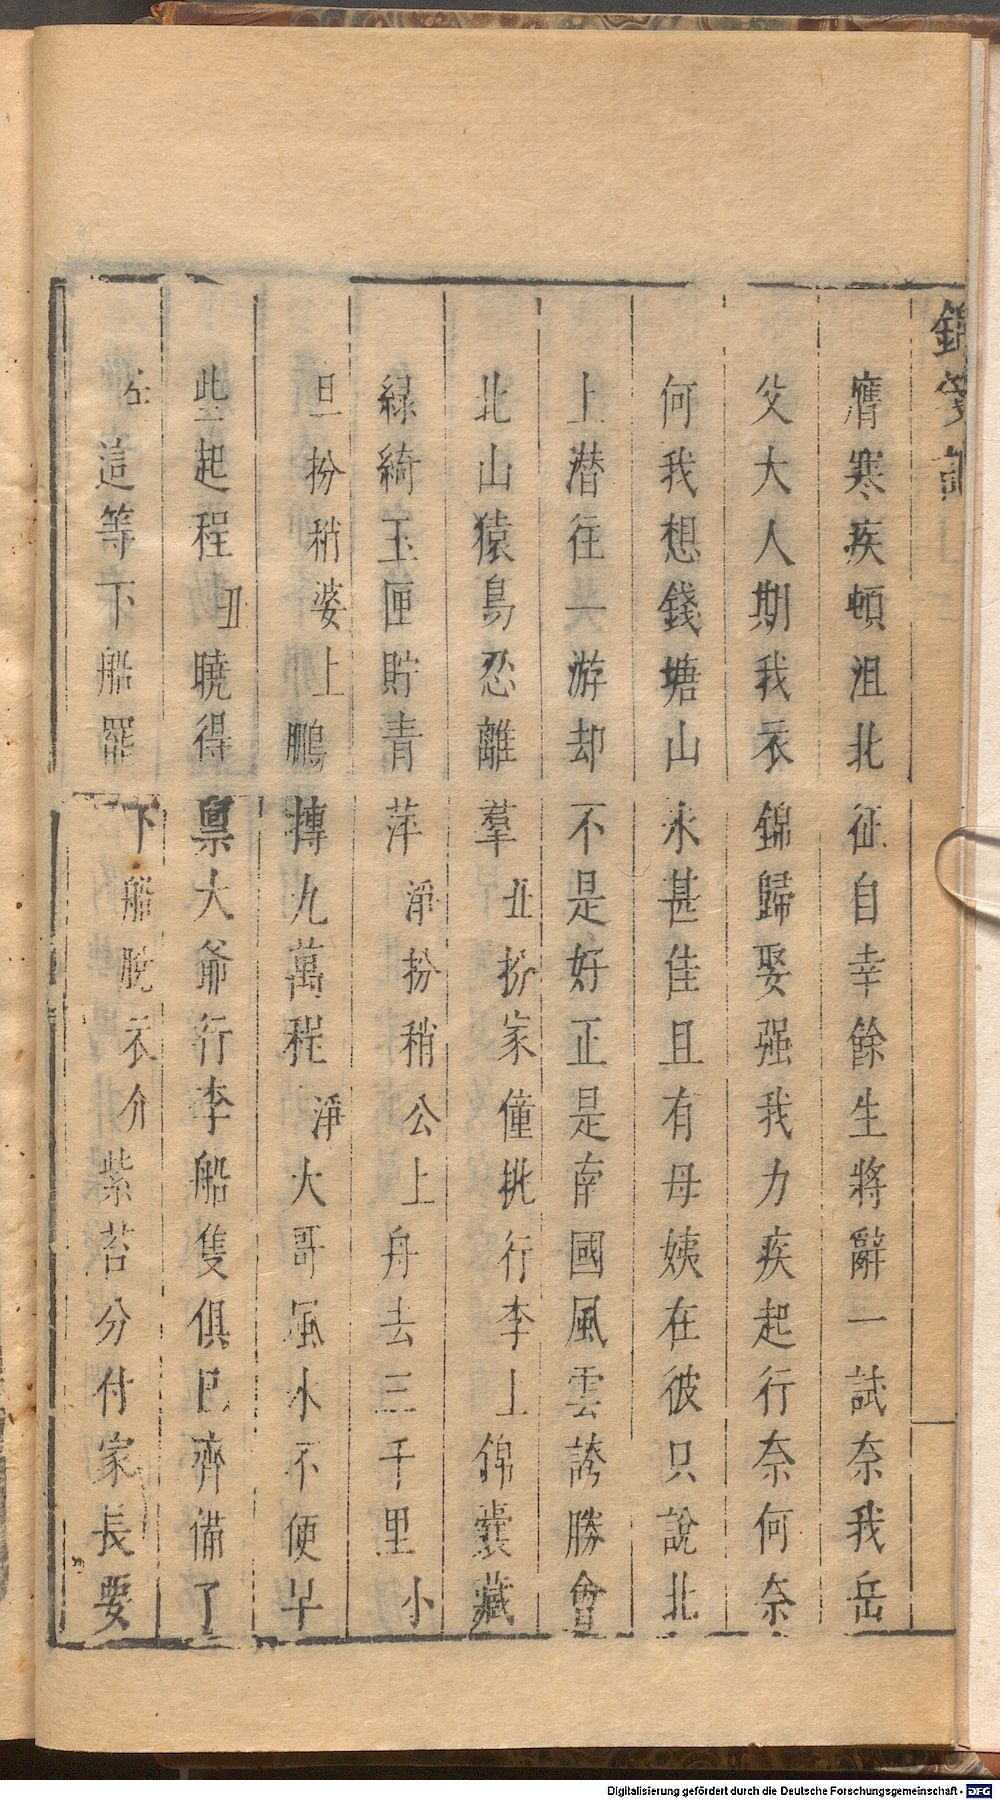 錦箋記
膺寒疾頓沮北征自幸餘生將辭一試奈我岳
父大人期我衣錦歸娶强我力疾起行奈何奈
何我想錢塘山水甚佳且有母姨在彼只說北
上潜往一游却不是好正是南國風雲誇勝會
北山猿鳥忍離羣 丑扮家僮挑行李上 錦囊藏
緑綺玉匣貯青萍 淨扮稍公上 舟去三千里 小
旦扮稍婆上 鵬摶九萬程 淨 大哥風水不便早
些起程 丑 曉得禀大爺行李船隻俱已齊備了
生 這等下船罷 下船脫衣介 紫苔分付家長要
Digitalisierung gefördert durch die Deutsche Forschungsgemeinschaft - DFG